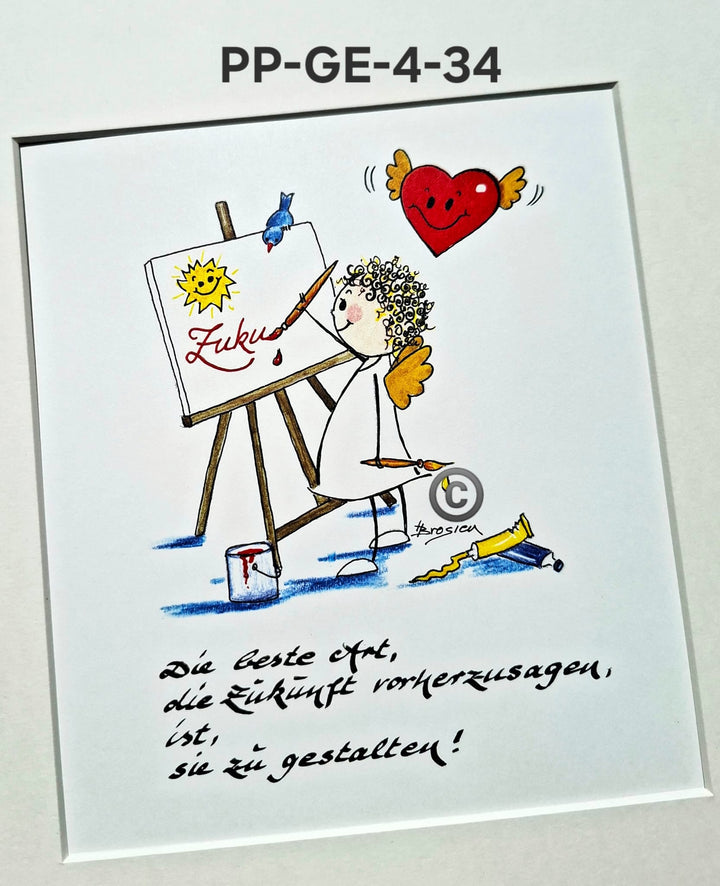 PP-GE-4-34
Zuku
©
HBrosien
Die beste Art,
die Zukunft vorherzusagen,
ist,
sie zu gestalten!